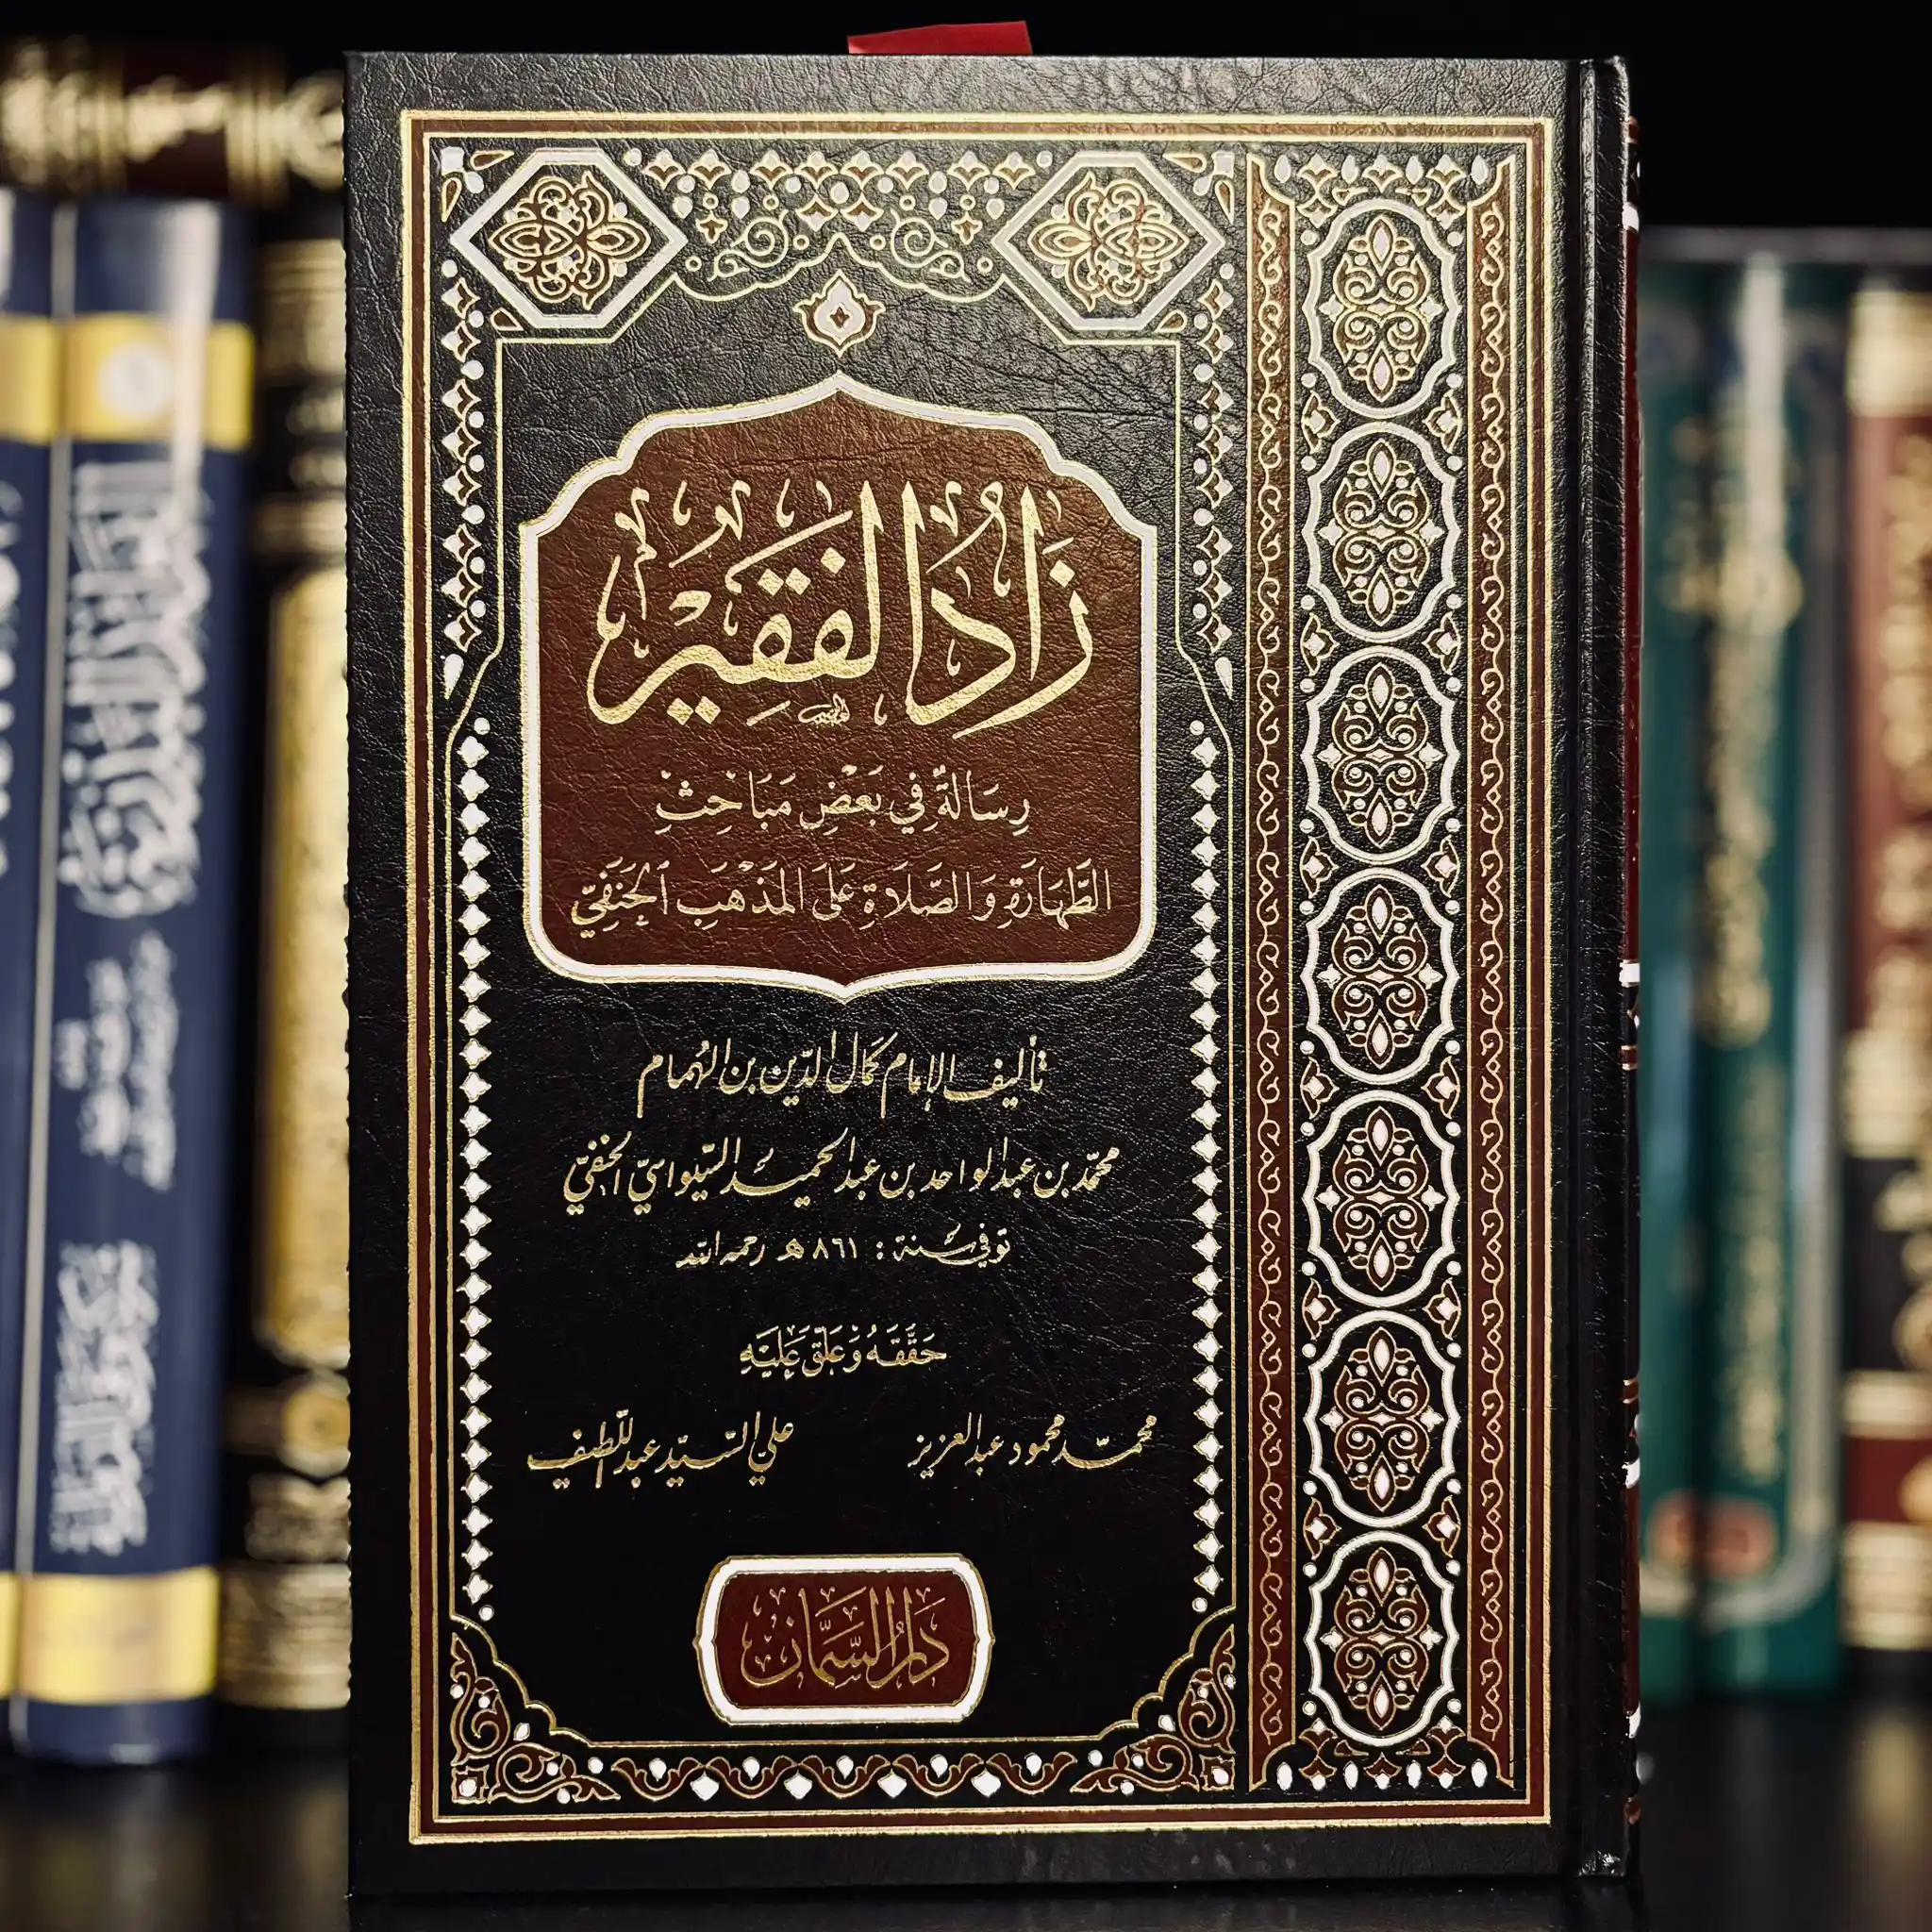 زَادُ الفَقِيْر
رِسَالَةٌ فِي بَعْضِ مَبَاحِثِ
الطَّهَارَةِ وَالصَّلَاةِ عَلَى المَذْهَبِ الحَنَفِيّ
تأليف الإمام كمال الدّين بن الهُمام
محمّد بن عبد الواحد بن عبد الحميد السّيواسيّ الحنفيّ
توفي سنة : ٨٦١ هـ رحمه الله
حَقَّقَهُ وَعَلَّقَ عَلَيْهِ
محمّد محمود عبد العزيز
علي السّيّد عبد اللّطيف
دَارُ السَّمَّان